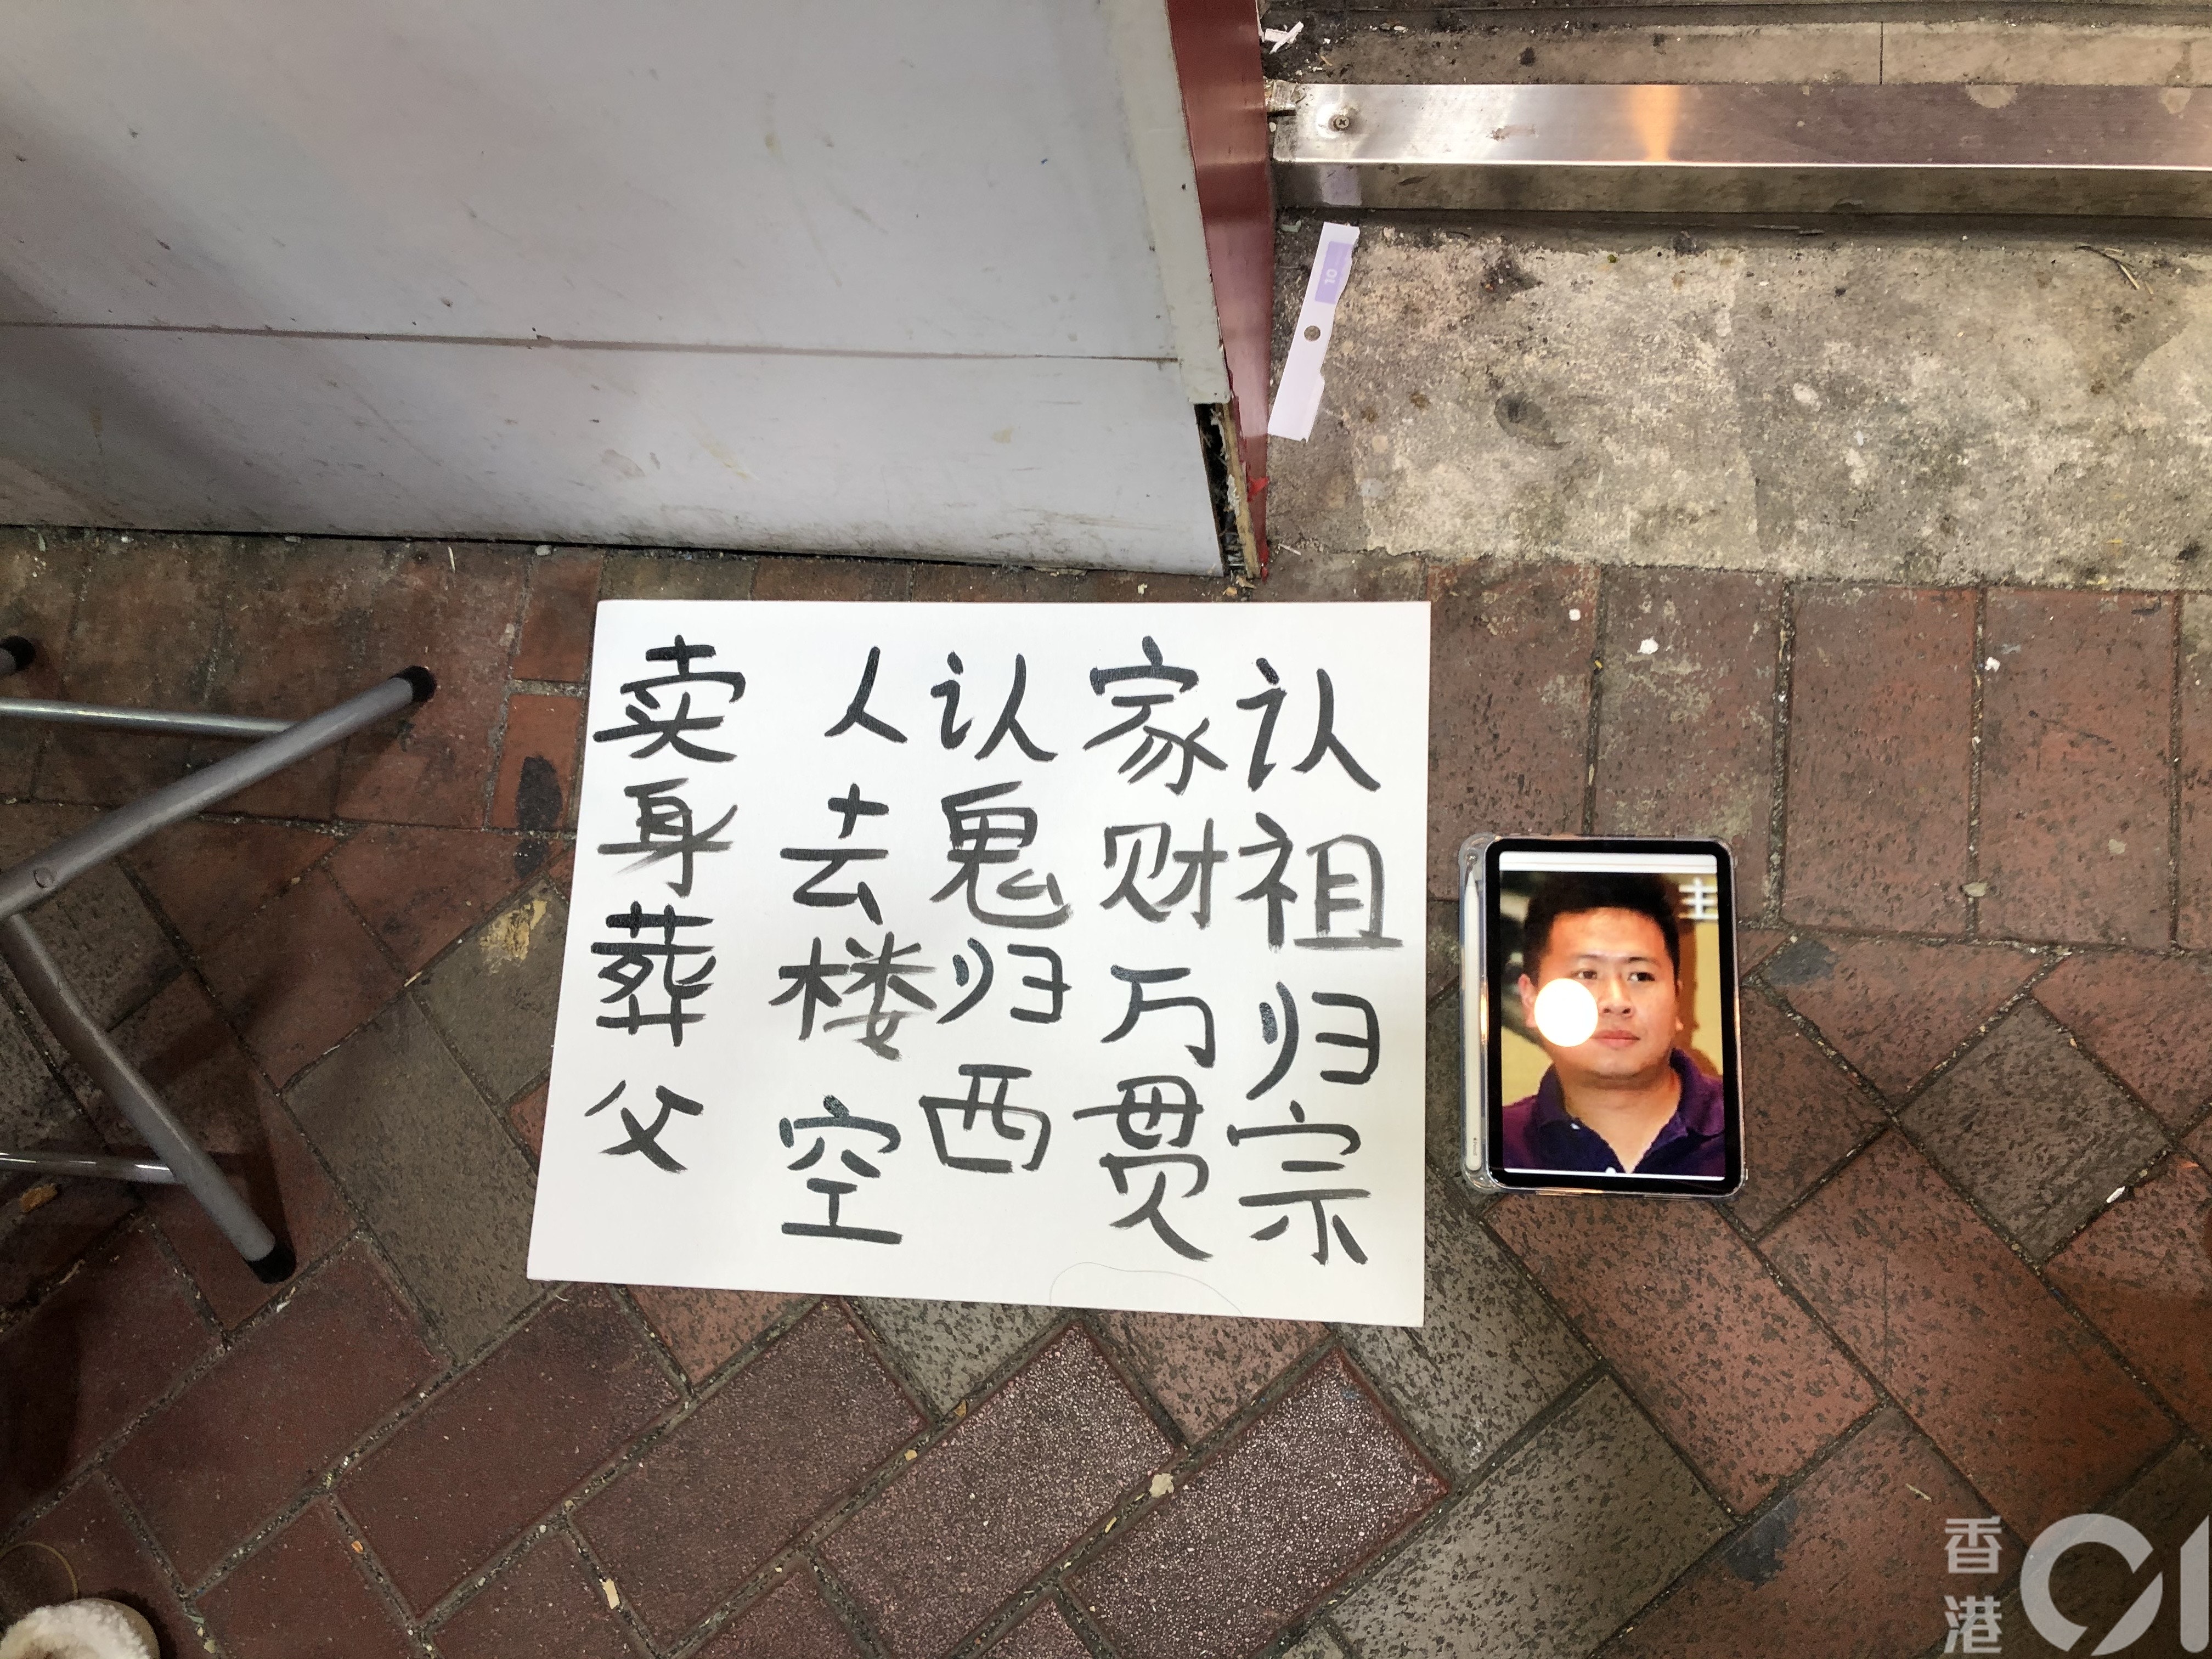 认祖归宗
家财万贯
认鬼归西
人去楼空
卖身葬父
主
01
香港01